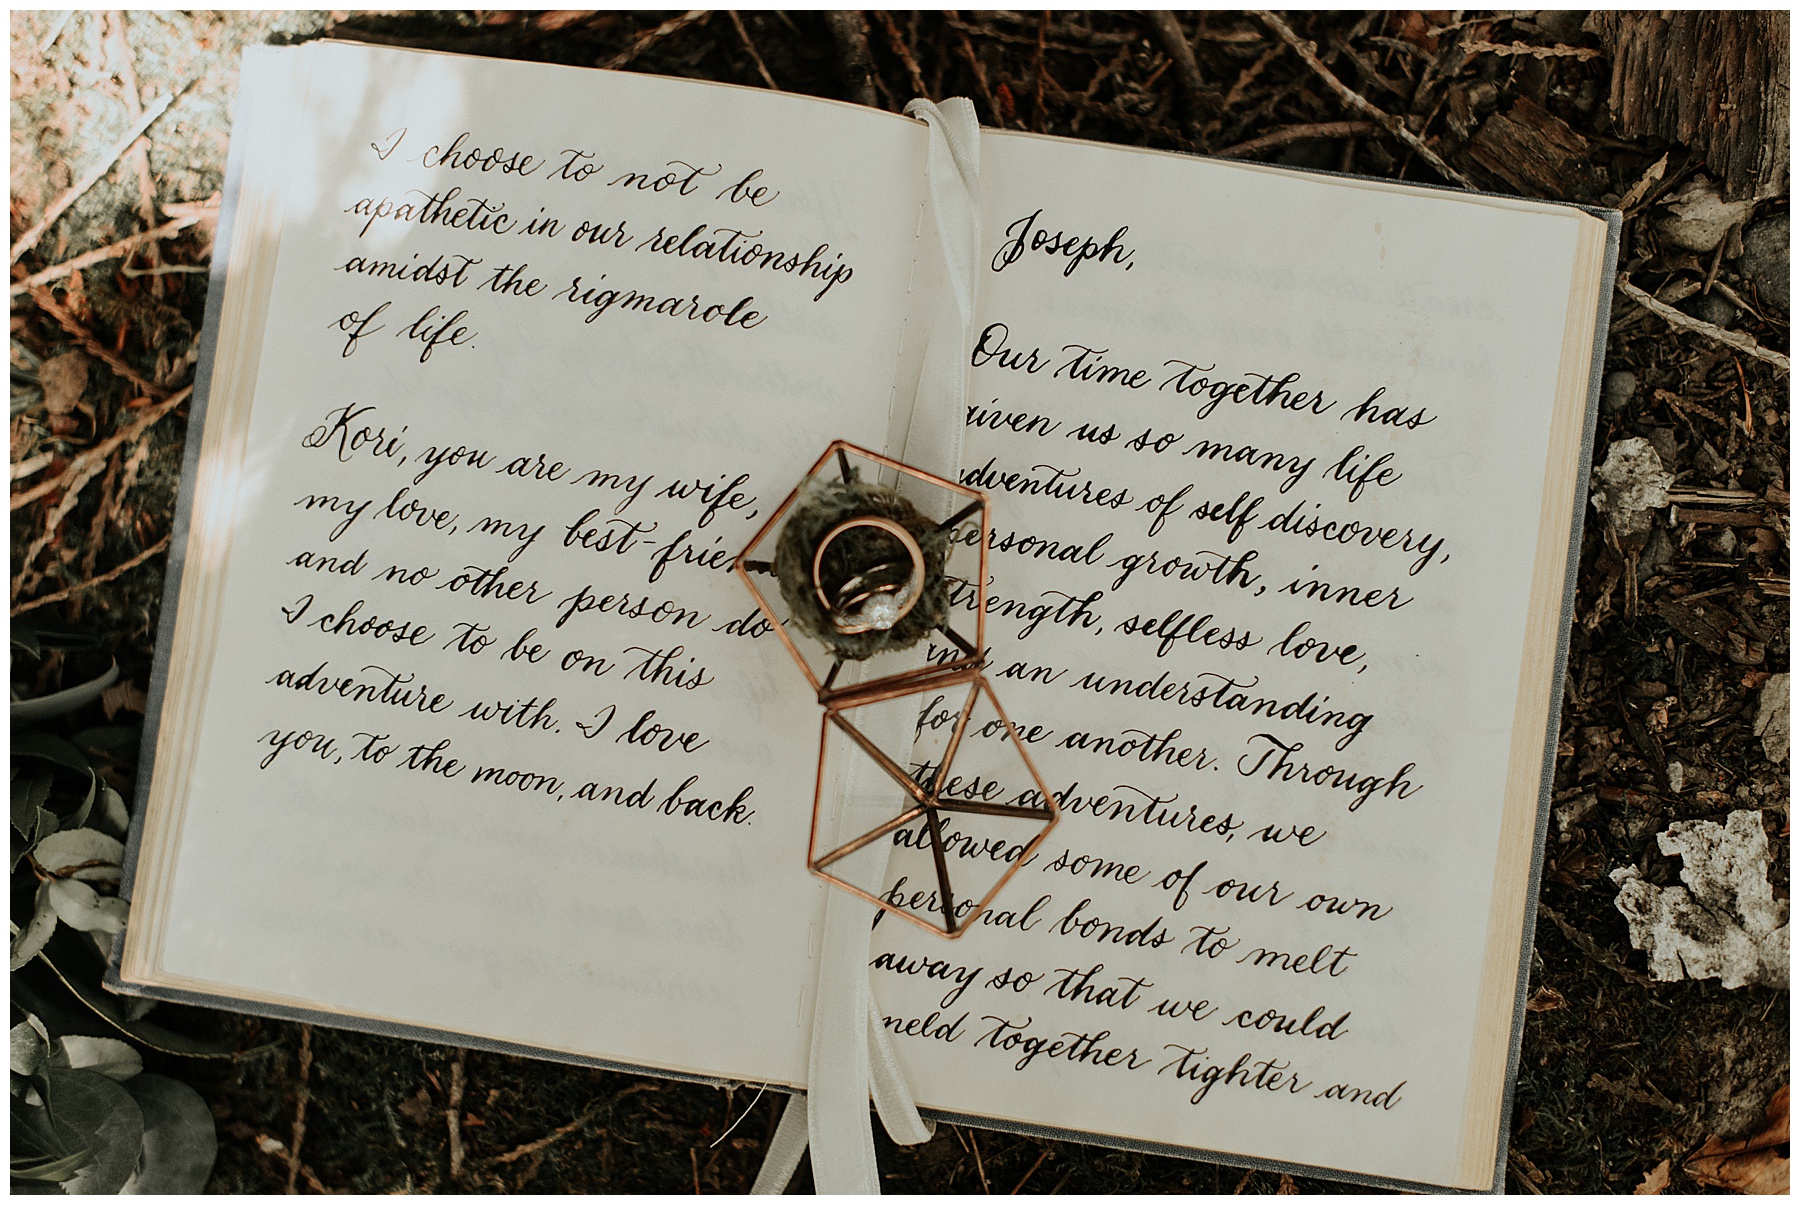 I choose to not be
apathetic in our relationship
amidst the rigmarole
of life.
Kori, you are my wife,
my love, my best-friend
and no other person do
I choose to be on this
adventure with. I love
you, to the moon, and back.
Joseph,
Our time together has
given us so many life
adventures of self discovery,
personal growth, inner
strength, selfless love,
and an understanding
for one another. Through
these adventures, we
allowed some of our own
personal bonds to melt
away so that we could
meld together tighter and